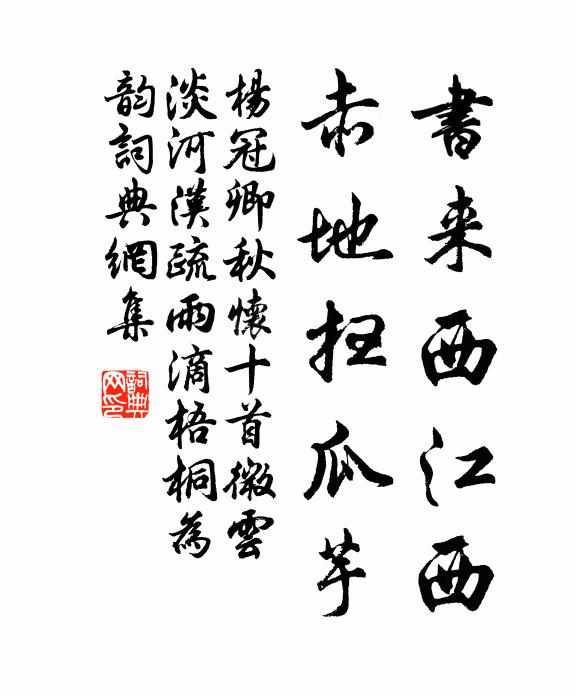 書来西江西
赤地抂瓜芋
楊冠卿秋懷十首微雲
淡河漢疏雨滴梧桐為
韵詞典網集
詞典网印